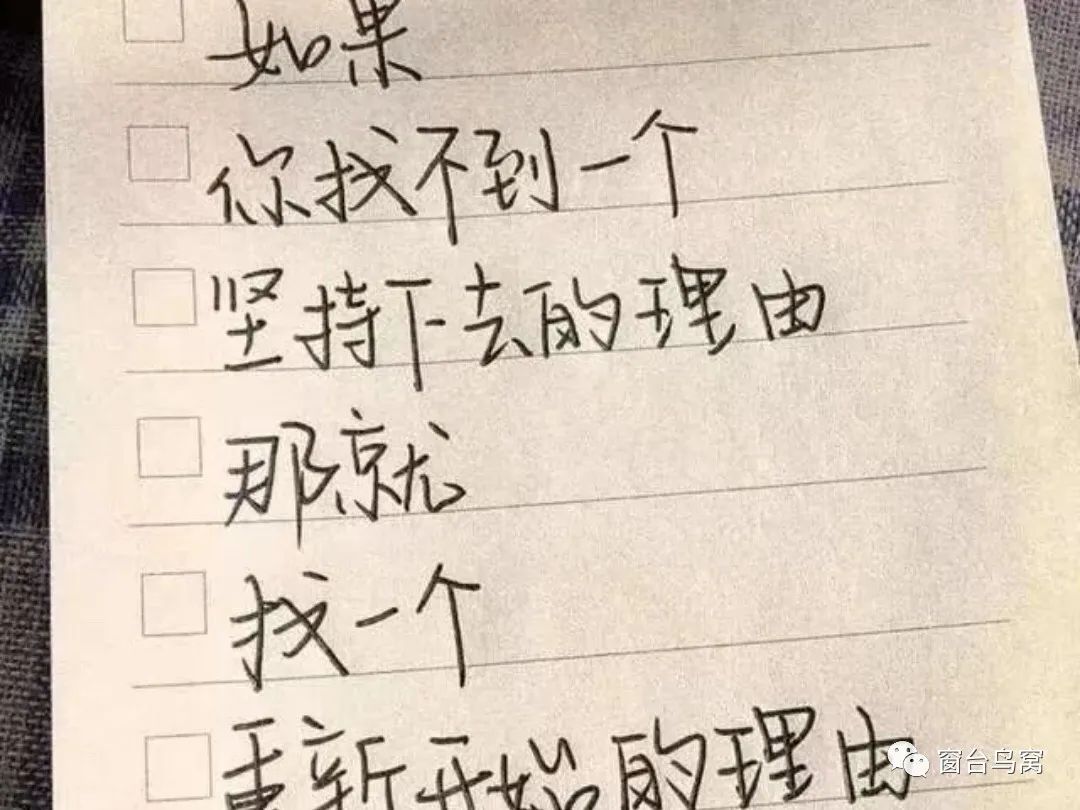 如果
你找不到一个
坚持下去的理由
那就
找一个
重新开始的理由
窗台鸟窝